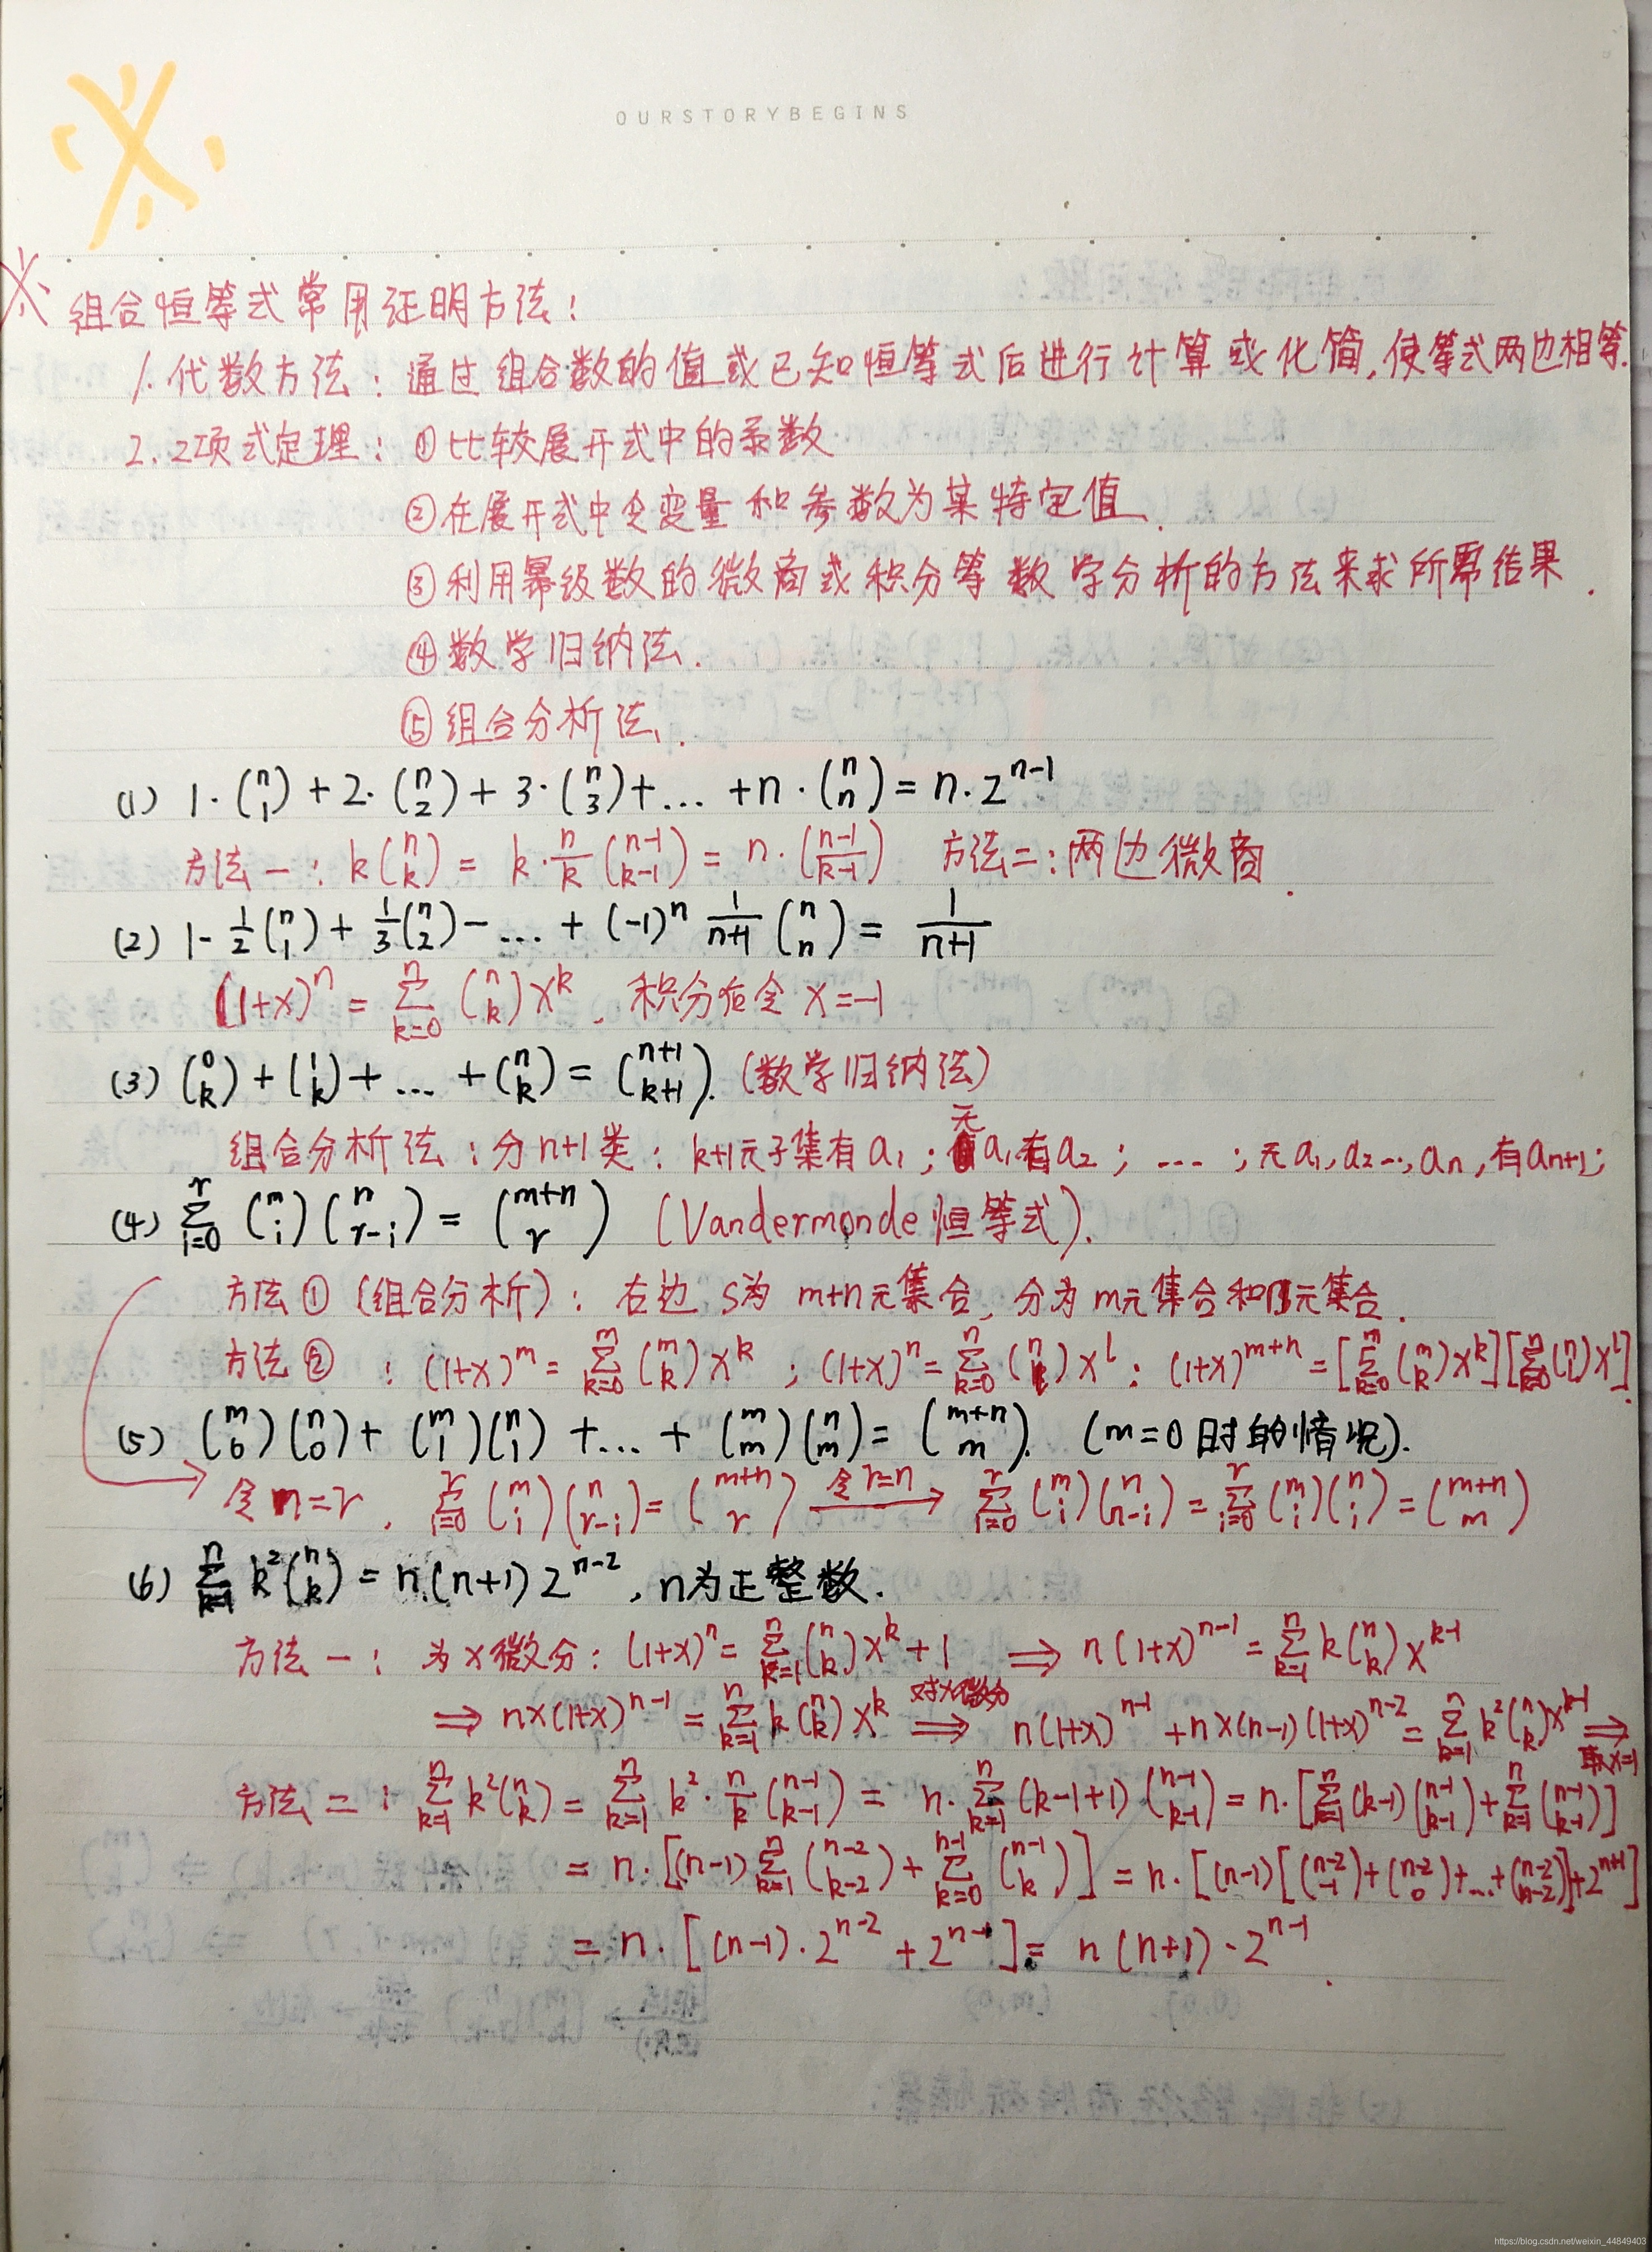 OURSTORYBEGINS
※ 组合恒等式常用证明方法：
1. 代数方法：通过组合数的值或已知恒等式后进行计算或化简,使等式两边相等.
2. 2项式定理：①比较展开式中的系数
②在展开式中令变量和参数为某特定值.
③利用幂级数的微商或积分等数学分析的方法来求所需结果.
④数学归纳法.
⑤组合分析法.
(1) 1·(n 1)+2·(n 2)+3·(n 3)+…+n·(n n)=n·2^{n-1}
方法一：k(n k)=k·n/k(n-1 k-1)=n·(n-1 k-1) 方法二：两边微商.
(2) 1-1/2(n 1)+1/3(n 2)-…+(-1)^n 1/(n+1)(n n)=1/(n+1)
(1+x)^n=∑_{k=0}^{n}(n k)x^k，积分后令x=-1
(3) (0 k)+(1 k)+…+(n k)=(n+1 k+1). (数学归纳法)
组合分析法：分n+1类：k+1元子集有a₁；无a₁有a₂；…；无a₁,a₂…,aₙ,有aₙ₊₁；
(4) ∑_{i=0}^{r}(m i)(n r-i)=(m+n r) (Vandermonde恒等式).
方法①(组合分析)：右边S为m+n元集合,分为m元集合和n元集合.
方法②：(1+x)^m=∑_{k=0}^{m}(m k)x^k；(1+x)^n=∑_{k=0}^{n}(n l)x^l；(1+x)^{m+n}=[∑_{k=0}^{m}(m k)x^k][∑_{k=0}^{n}(n l)x^l].
(5) (m 0)(n 0)+(m 1)(n 1)+…+(m m)(n m)=(m+n m). (m=0时的情况).
令n=r，∑_{i=0}^{r}(m i)(n r-i)=(m+n r) 令r=n→ ∑_{i=0}^{r}(m i)(n n-i)=∑_{i=0}^{r}(m i)(n i)=(m+n m)
(6) ∑_{k=1}^{n}k²(n k)=n(n+1)2^{n-2}，n为正整数.
方法一：为x微分：(1+x)^n=∑_{k=1}^{n}(n k)x^k+1 ⇒ n(1+x)^{n-1}=∑_{k=1}^{n}k(n k)x^{k-1}
⇒ nx(1+x)^{n-1}=∑_{k=1}^{n}k(n k)x^k 对x微分⇒ n(1+x)^{n-1}+nx(n-1)(1+x)^{n-2}=∑_{k=1}^{n}k²(n k)x^{k-1} ⇒取x=1
方法二：∑_{k=1}^{n}k²(n k)=∑_{k=1}^{n}k²·n/k(n-1 k-1)=n·∑_{k=1}^{n}(k-1+1)(n-1 k-1)=n·[∑_{k=1}^{n}(k-1)(n-1 k-1)+∑_{k=1}^{n}(n-1 k-1)]
=n·[(n-1)∑_{k=1}^{n}(n-2 k-2)+∑_{k=0}^{n-1}(n-1 k)]=n·[(n-1)[(n-2 -1)+(n-2 0)+…+(n-2 n-2)]+2^{n+1}]
=n·[(n-1)·2^{n-2}+2^{n-1}]=n(n+1)·2^{n-1}.
https://blog.csdn.net/weixin_44849403